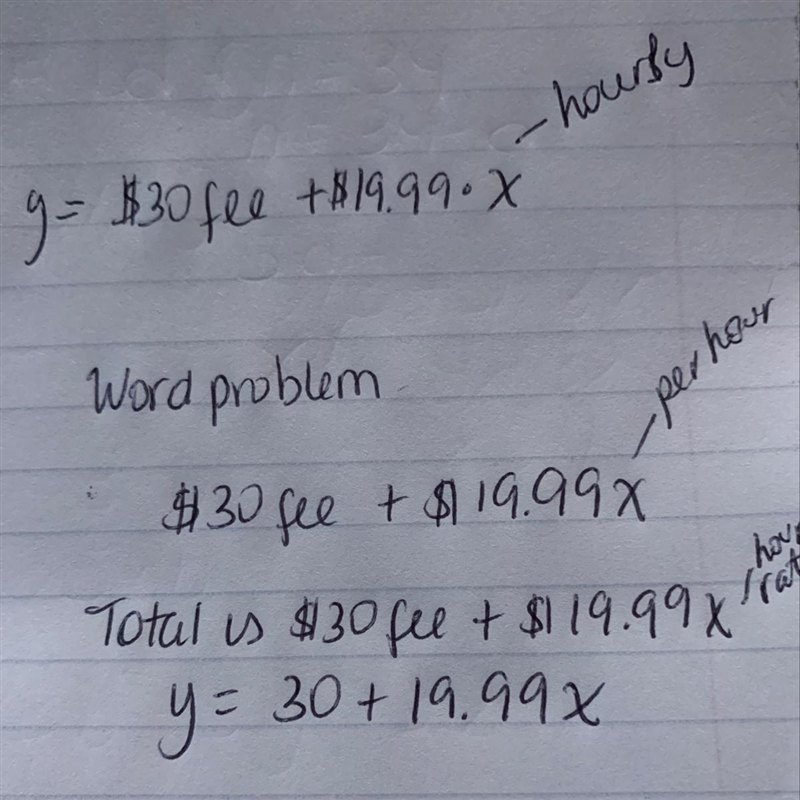 – hourly
y = $30 fee + $19.99 • x
Word problem
– per hour
$30 fee + $19.99x
Total is $30 fee + $19.99x
y = 30 + 19.99x